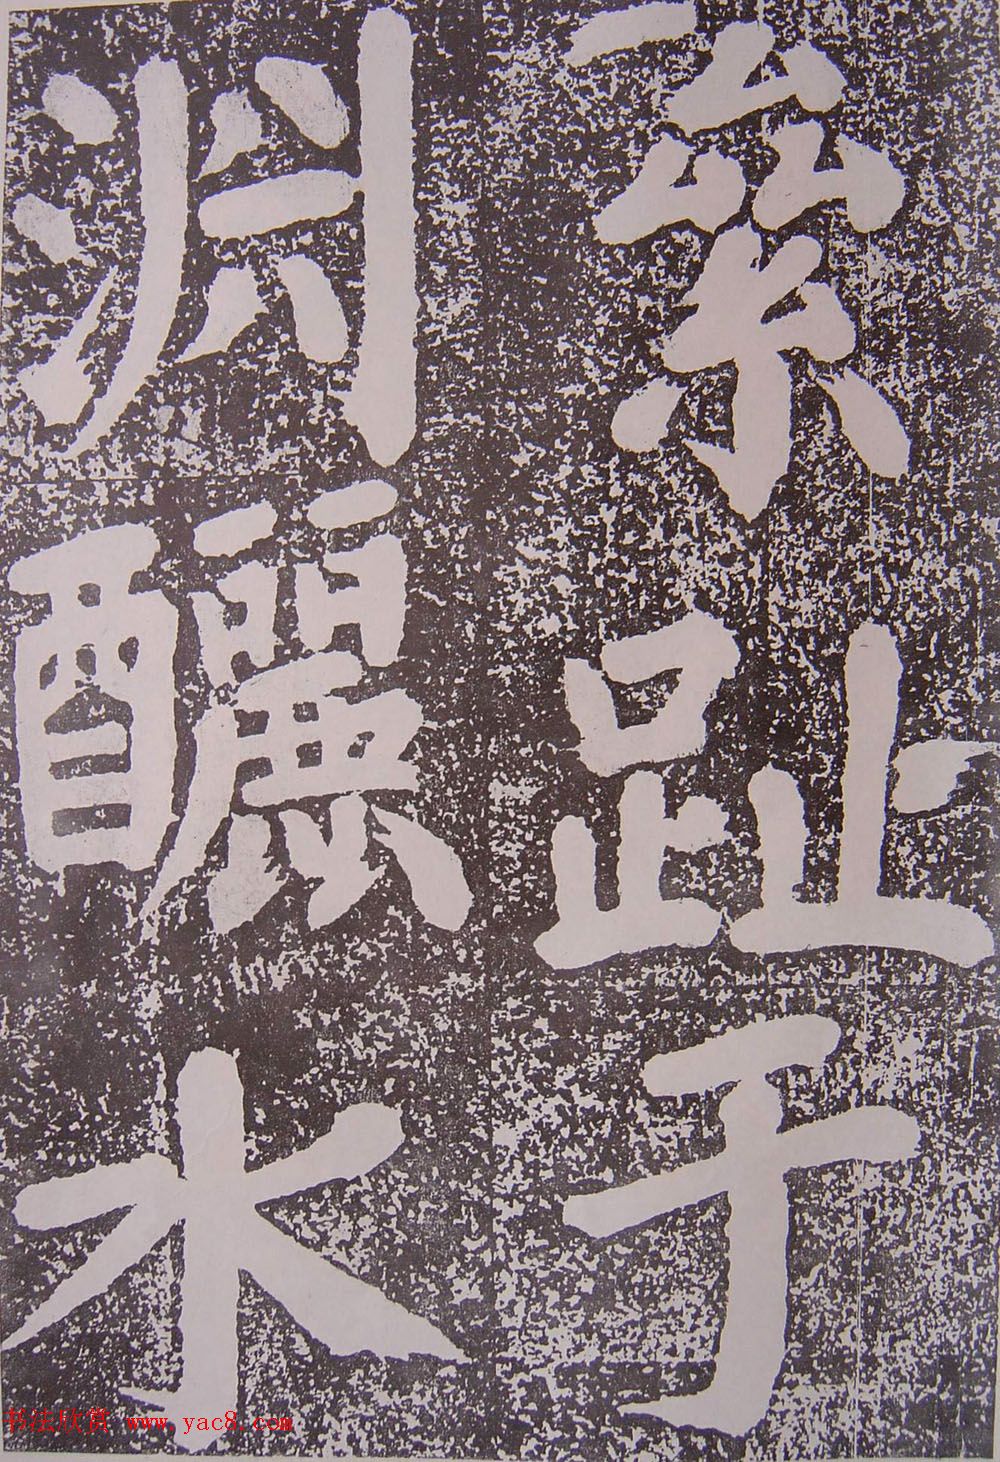 絫趾于
淵釃水
书法欣赏 www.yac8.com